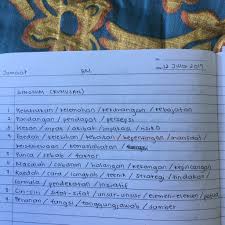 12 Julai 2019
Jumaat BM
SINONIM (RUMUSAN)
1. Keburukan / kelemahan / kekurangan / kecacatan
2. Pandangan / pendapat / persepsi
3. Kesan / impak / akibat / implikasi / risiko
4. Faedah / kelebihan / kebaikan / kepentingan / manfaat /
keistimewaan / kemaslahatan
5. Punca / sebab / faktor
6. Masalah / cabaran / halangan / kekangan /
7. Kaedah / cara / langkah / teknik / strategi / tindakan /
formula / pendekatan / inisiatif
8. Ciri-ciri / sifat-sifat / unsur-unsur / elemen-elemen /
9. Peranan / fungsi / tanggungjawab / sumber